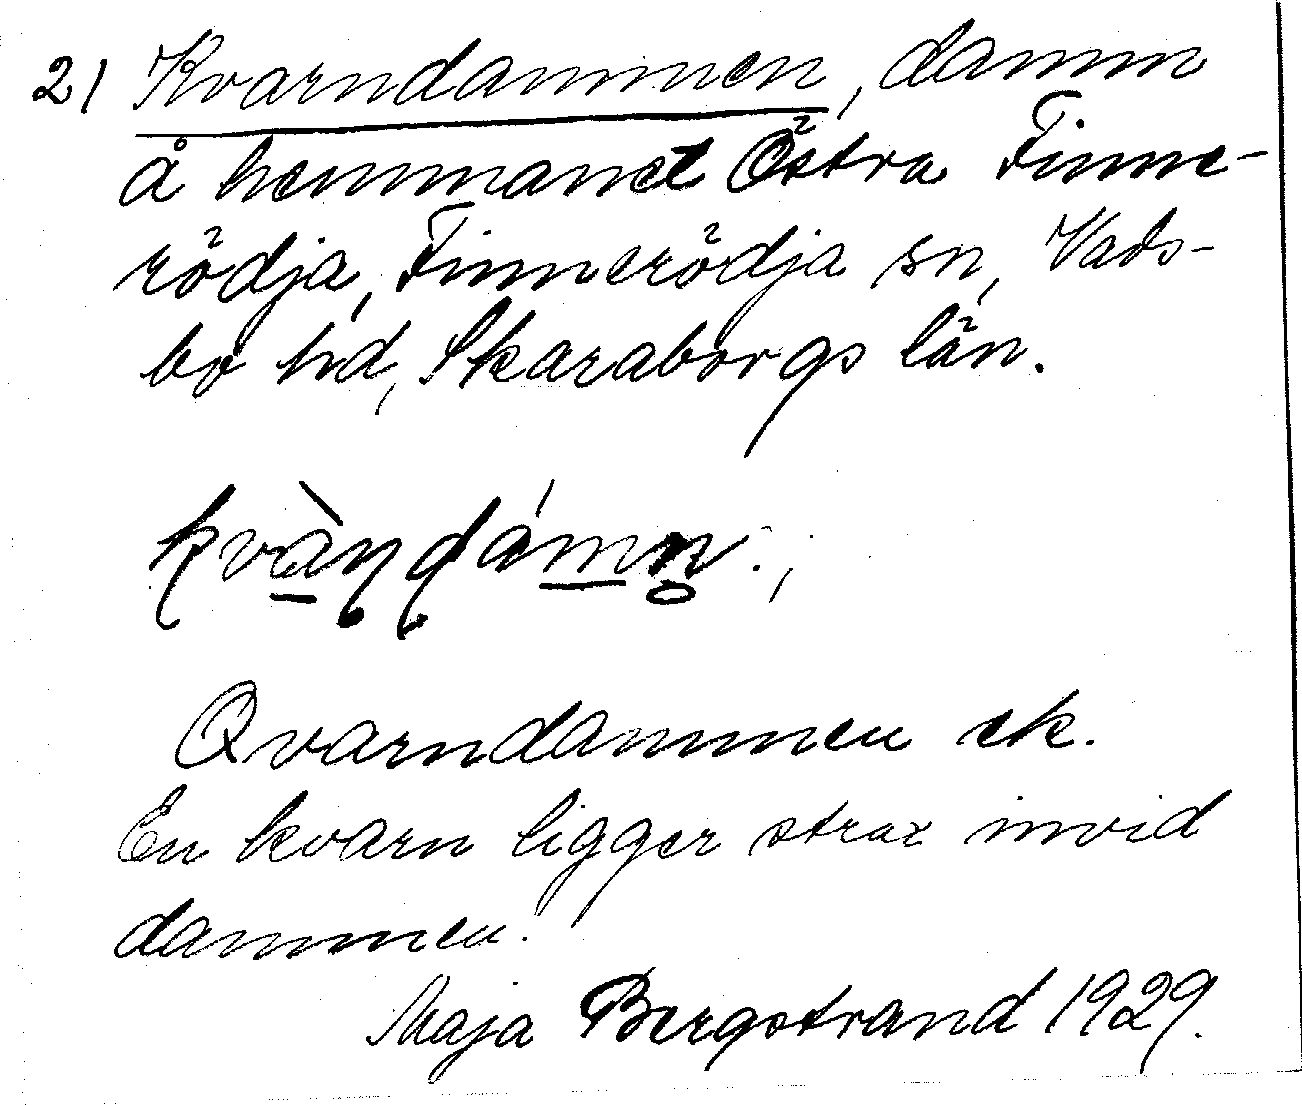 2) Kvarndammen, damm
å hemmanet Östra Finne-
rödja, Finnerödja sn, Vads-
bo hd, Skaraborgs län.
kvàɳɖámn̥.,
Qvarndammen ek.
En kvarn ligger strax invid
dammen.
Maja Bergstrand 1929.